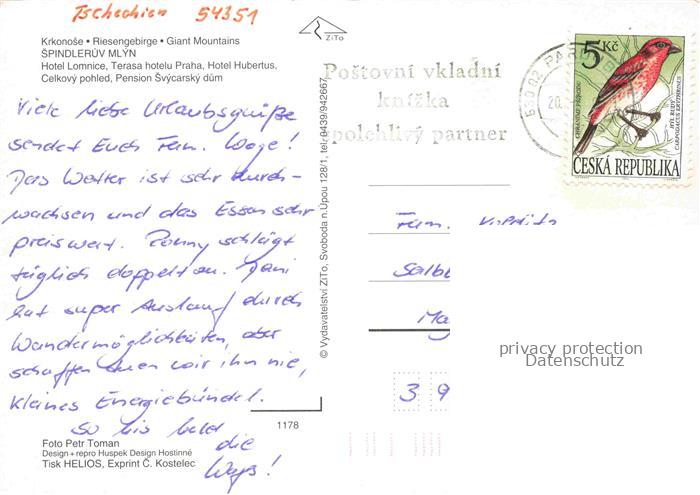 Tschechien 54351
Krkonoše • Riesengebirge • Giant Mountains
ŠPINDLERŮV MLÝN
Hotel Lomnice, Terasa hotelu Praha, Hotel Hubertus,
Celkový pohled, Pension Švýcarský dům
ZiTo
Viele liebe Urlaubsgrüße
sendet Euch Fam. Woge!
Das Wetter ist sehr durch-
wachsen und das Essen sehr
preiswert. Ronny schlägt
täglich doppelt an. Dani
hat super Auslauf durch
Wandermöglichkeiten, aber
schaffen tuen wir ihn nie,
kleines Energiebündel.
So bis bald
die
Wogs!
1178
Foto Petr Toman
Design + repro Huspek Design Hostinné
Tisk HELIOS, Exprint Č. Kostelec
© Vydavatelství ZiTo, Svoboda n.Úpou 128/1, tel. 0439/942667
Poštovní vkladní
knížka
spolehlivý partner
5 Kč
OCHRANA PŘÍRODY
HÝL RUDÝ
CARPODACUS ERYTHRINUS
ČESKÁ REPUBLIKA
Fam.
Salb
Mag
3 9
privacy protection
Datenschutz